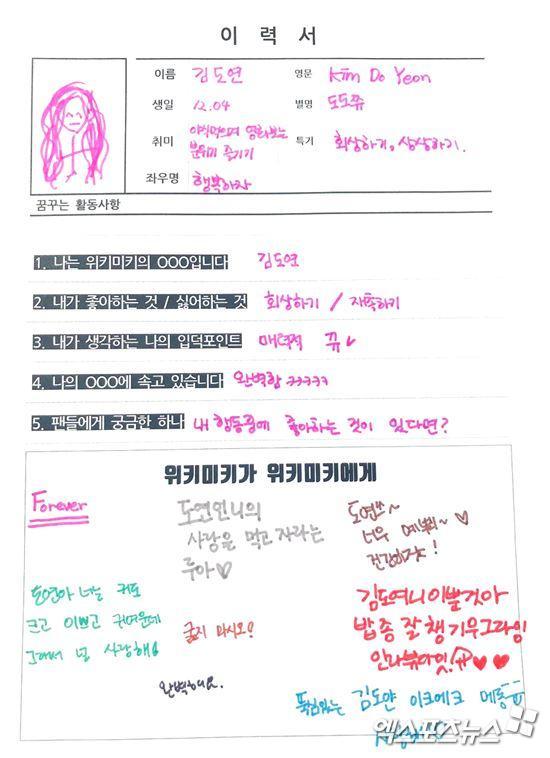 이 력 서
이름 김도연 영문 Kim Do Yeon
생일 12.04 별명 도도쮸
취미 야식먹으며 영화보는 분위기 즐기기 특기 회상하기, 상상하기.
좌우명 행복하자
꿈꾸는 활동사항
1. 나는 위키미키의 OOO입니다 김도연
2. 내가 좋아하는 것 / 싫어하는 것 회상하기 / 재촉하기
3. 내가 생각하는 나의 입덕포인트 매력적
4. 나의 OOO에 속고 있습니다 완벽함 ㅋㅋㅋㅋㅋ
5. 팬들에게 궁금한 하나 내 행동중에 좋아하는 것이 있다면?
위키미키가 위키미키에게
Forever
도연언니의
사랑을 먹고 자라는
루아♡
너무 예뻐~ ♡
건강하자!
도연아 너는 키도
크고 이쁘고 귀여운데
그래서 널 사랑해
굶지 마시오!
완벽해요.
김도여니 이쁠것아
밥 종 잘 챙기우그라잉
인나뷰아잇! ♥♥
김도얀 이크에크 메롱
엑스포츠뉴스